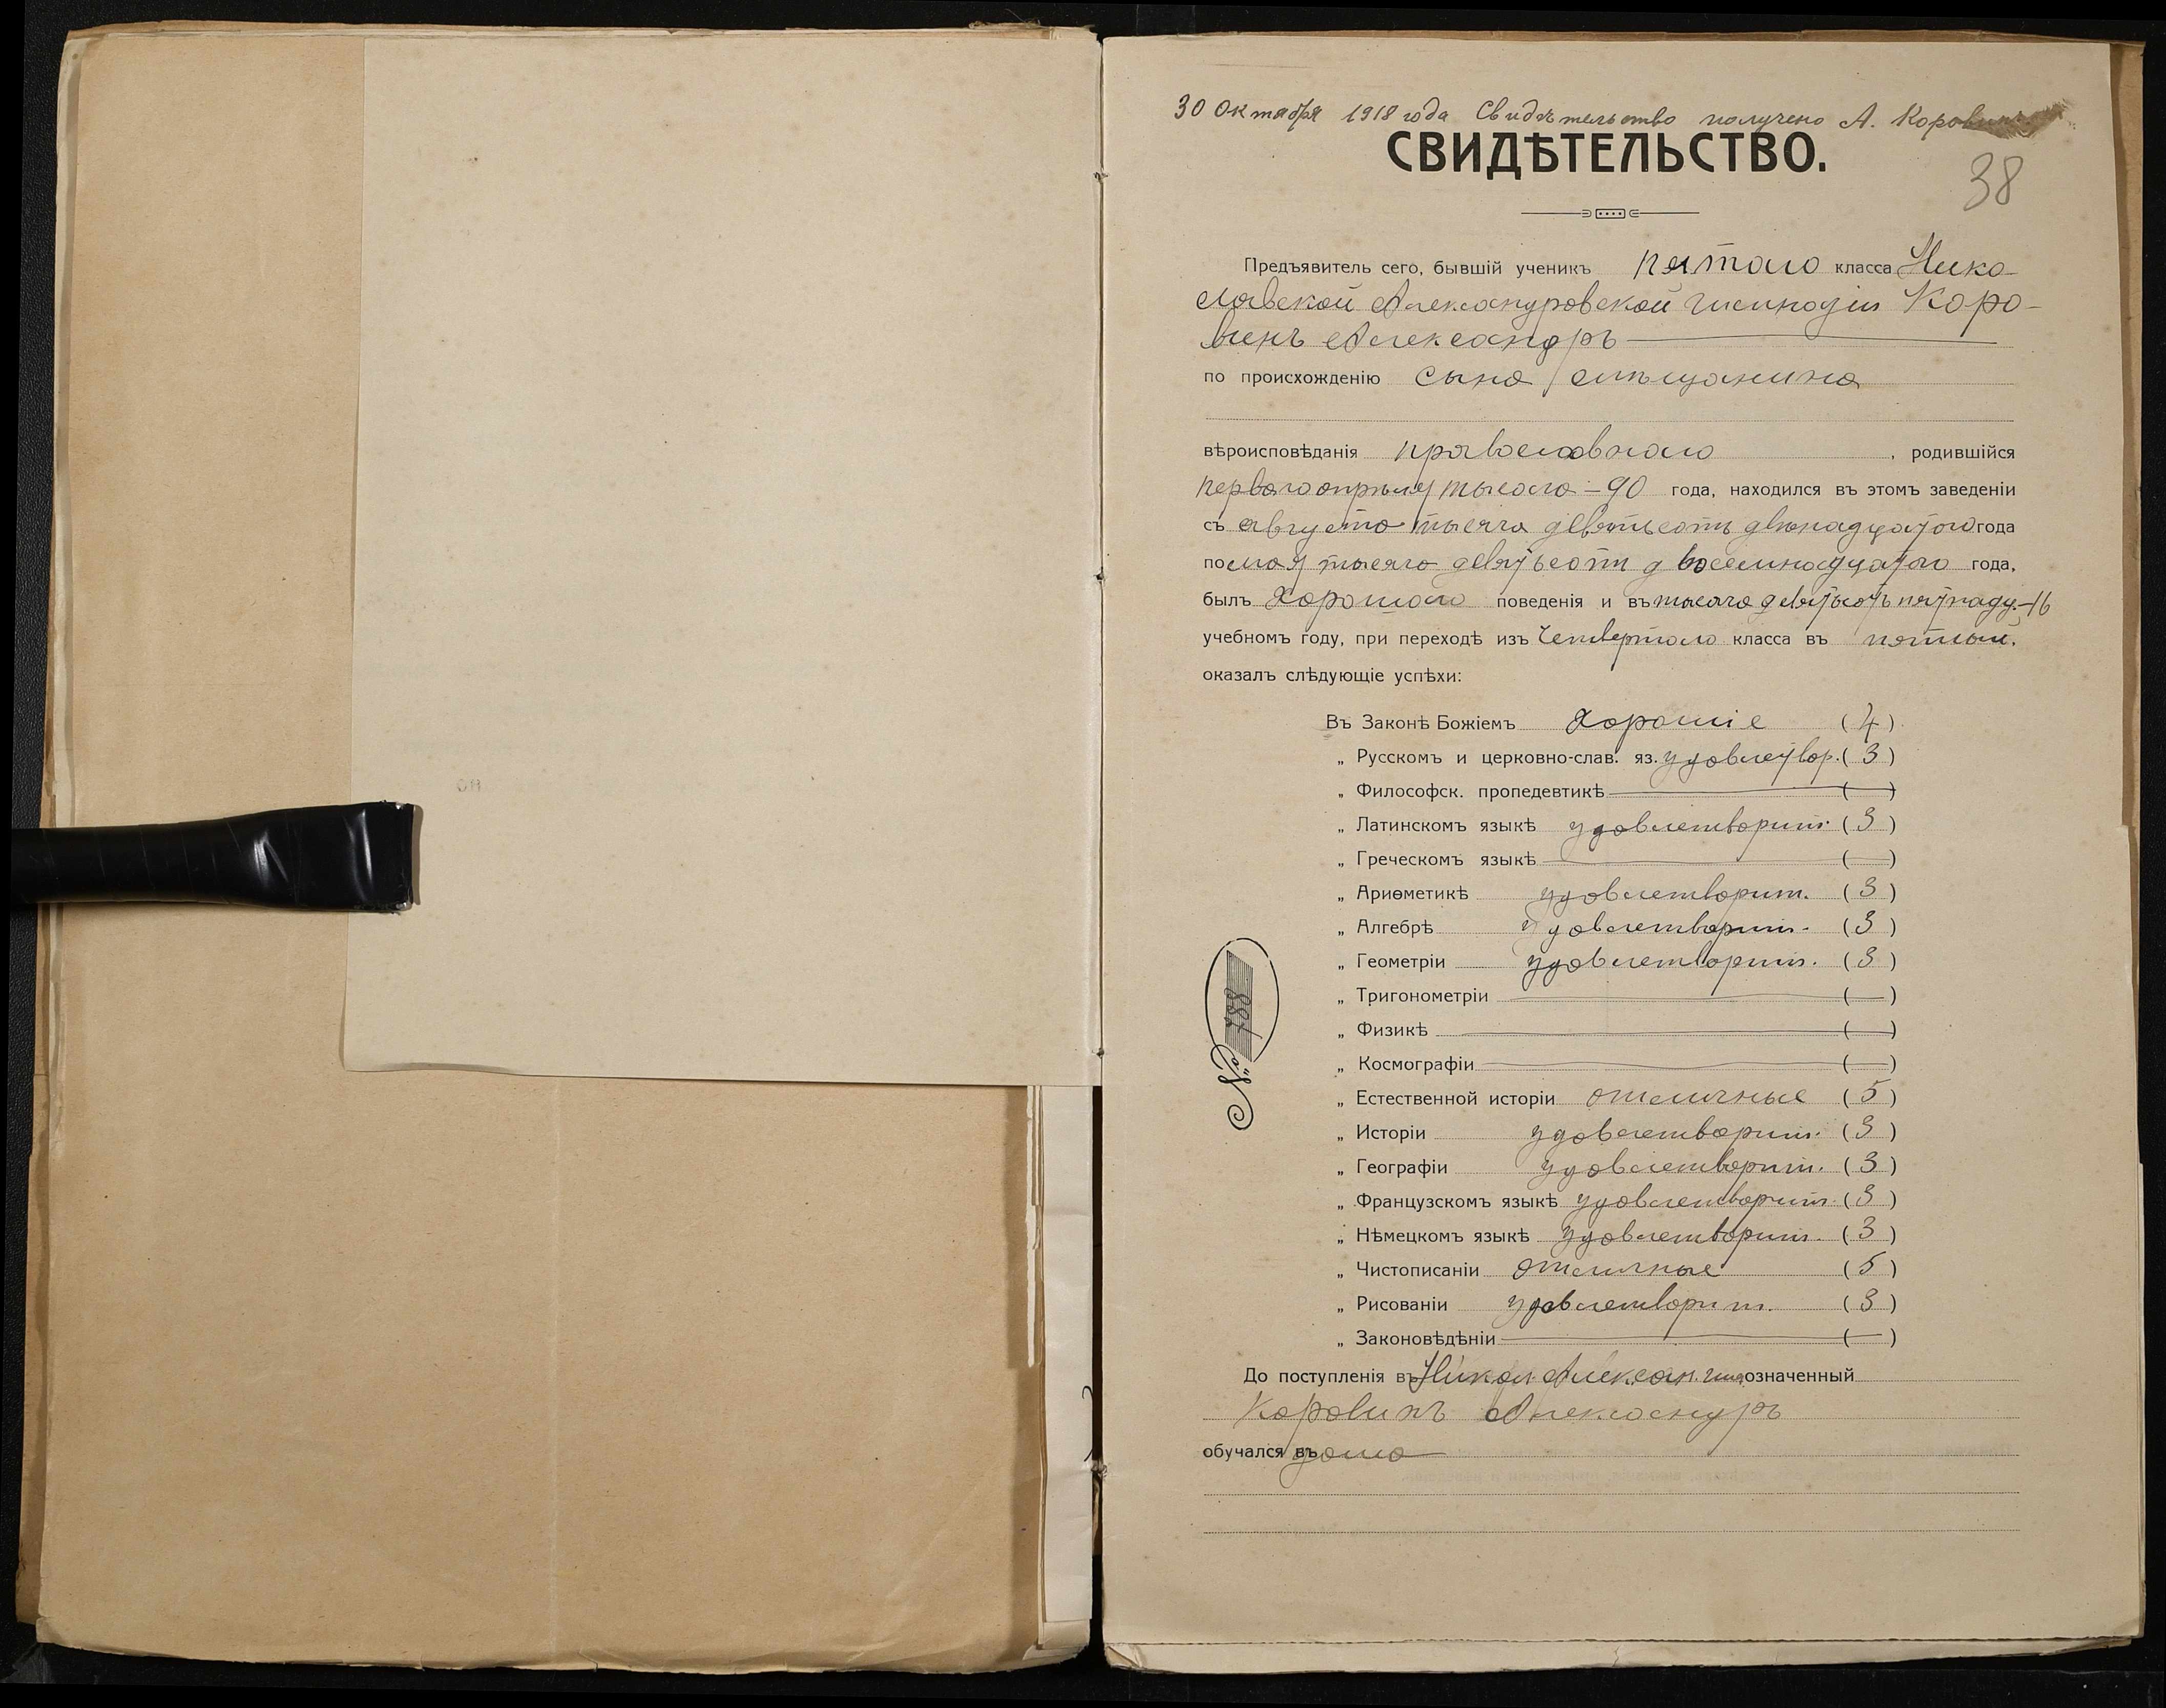 30 Октября 1918 года Свидѣтельство получено А. Коровинъ
СВИДѢТЕЛЬСТВО.
38
Предъявитель сего, бывшій ученикъ пятаго класса Нико-
лаевской Александровской гимназіи Коро-
винъ Александръ
по происхожденію сына мѣщанина
вѣроисповѣданія православнаго, родившійся
перваго апрѣля тысяча - 90 года, находился въ этомъ заведеніи
съ августа тысяча девятьсотъ двѣнадцатаго года
по мая тысяча девятьсотъ восемнадцатаго года,
былъ хорошаго поведенія и въ тысяча девятьсотъ пятнадц.-16
учебномъ году, при переходѣ изъ четвертаго класса въ пятый.
оказалъ слѣдующіе успѣхи:
Въ Законѣ Божіемъ хорошіе (4)
„ Русскомъ и церковно-слав. яз. удовлетвор. (3)
„ Философск. пропедевтикѣ — (—)
„ Латинскомъ языкѣ удовлетворит. (3)
„ Греческомъ языкѣ — (—)
„ Ариѳметикѣ удовлетворит. (3)
„ Алгебрѣ удовлетворит. (3)
„ Геометріи удовлетворит. (3)
„ Тригонометріи — (—)
„ Физикѣ — (—)
„ Космографіи — (—)
„ Естественной исторіи отличные (5)
„ Исторіи удовлетворит. (3)
„ Географіи удовлетворит. (3)
„ Французскомъ языкѣ удовлетворит. (3)
„ Нѣмецкомъ языкѣ удовлетворит. (3)
„ Чистописаніи отличные (5)
„ Рисованіи удовлетворит. (3)
„ Законовѣдѣніи — (—)
№ 788
До поступленія въ Никол. Алексан. гим. означенный
Коровинъ Александръ
обучался въ дома